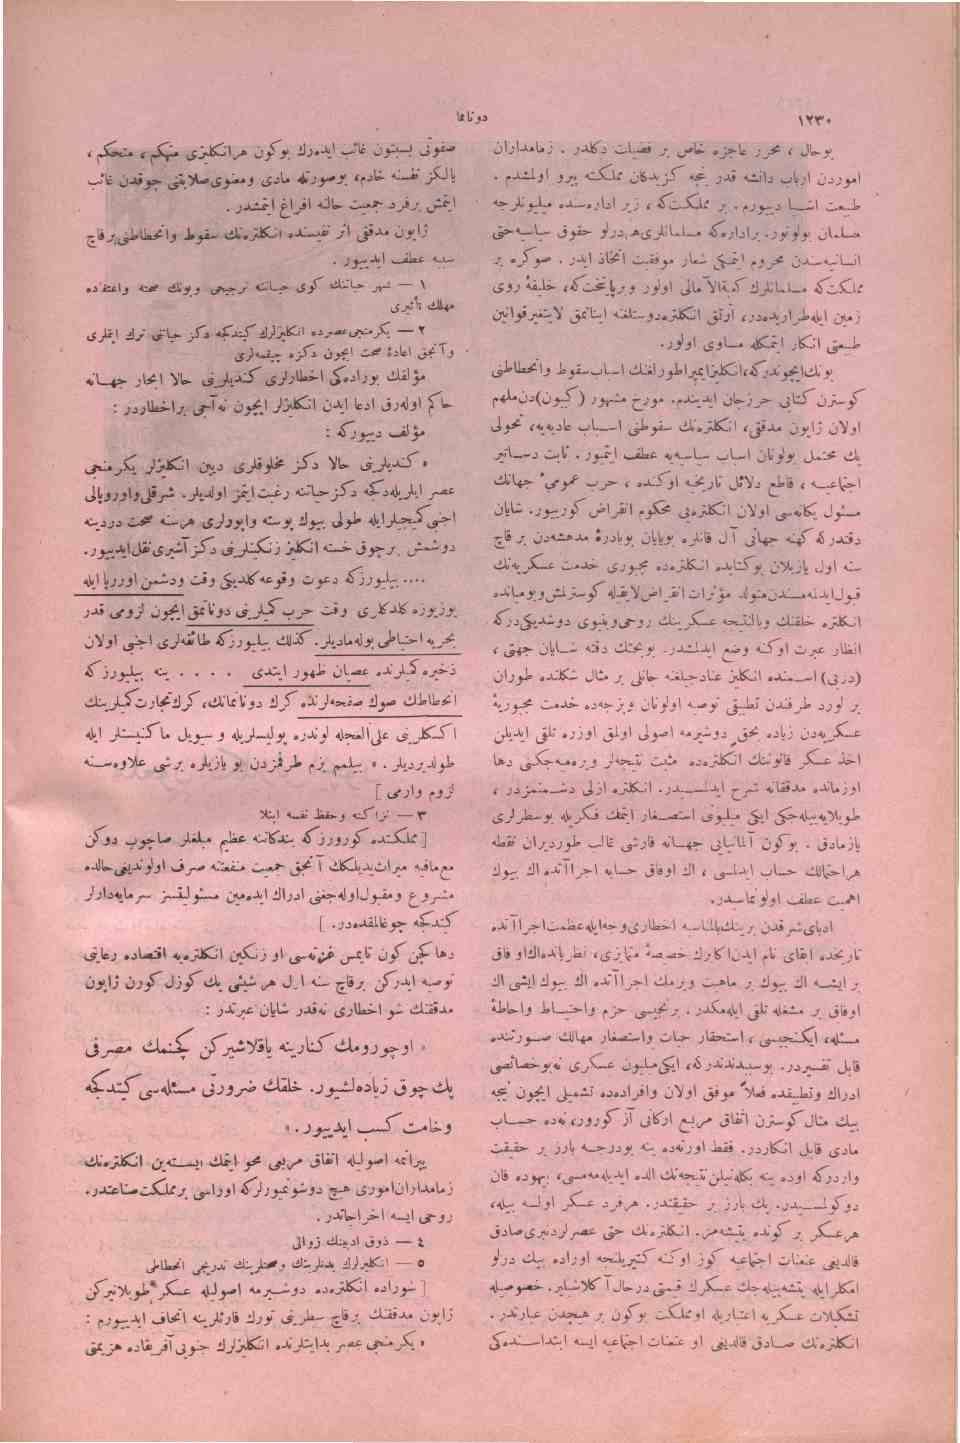 ١٢٣٠
دونانما
بوحال ، محرر عاجزه خاص بر فضیلت دكلدر . زمامداران
اموردن ارباب دانشه قدر نیجه كزیدكان مملكته پیرو اولمشدم .
طبیعت اشیا دییورم . بر مملكت‌كه ، زیر اداره‌سنده میلیونلرجه
مسلمان بولونور. براداره‌كه مسلمانلری هر درلو حقوق سیاسیه حتی
انسانیه‌سندن محروم ایتمكی شعار موفقیت اتخاذ ایدر . صوكره بر
مملكت‌كه مسلمانلرك كعبة‌الآمالی اولور وبرپایتخت‌كه، خلیفۀ روی
زمین ایله طرازیده‌در، آرتق انكلتره‌دوستلغنه اینانمق لایتغیرقوانین
طبیعتی انكار ایتمكله مساوی اولور.
بونك‌ایچوندركه، انكلیزایمپراطورلغنك اسباب سقوط وانحطاطنی
كوسترن كتابی حرزجان ایدیندم. مورخ مشهور (كیبون)دن‌ملهم
اولان ژاپون مدققی، انكلتره‌نك سقوطنی اسباب عادیه‌یه، تحولی
پك محتمل بولونان اسباب سیاسیه‌یه عطف ایتمیور. ثابت دساتیر
اجتماعیه ، قاطع دلائل تاریخیه اوكنده ، حرب عمومئ جهانك
مسئول یكانه‌سی اولان انكلتره‌یی محكوم انقراض كورییور. شایان
دقتدركه كهنه جهانی آل قانلره بویایان بوبادرۀ مدهشه‌دن بر قاچ
سنه اول یازیلان بوكتابده انكلتره‌ده مجبوری خدمت عسكریه‌نك
قبول‌ایدلمه‌مسندن‌متولد مؤثرات انقراض‌لایقیله كوسترلمش‌وبومیانده
انكلتره خلقنك وبالنتیجه عسكرینك روحی‌وبنیوی دوشدیكی‌دركه
انظار عبرت اوكنه وضع ایدلمشدر. بوبحثك دقته شایان جهتی ،
(دربی) اسمنده انكلیز عنادجیلغنه جانلی بر مثال شكلنده طوران
بر لورد طرفندن تطبیقی توصیه اولونان وبزجه‌ده خدمت مجبوریۀ
عسكریه‌دن زیاده بحق دوشیرمه اصولی اولمق اوزره تلقی ایدیلن
اخذ عسكر قانوننك انكلتره‌ده مثبت نتیجه‌لر ویره‌میه‌جكنی دها
اوزمانده مدققانه شرح ایدلمسیدر. انكلتره ازلی دشمنمزدر ،
طوپلایه‌بیله‌جكی ایكی میلیونی استصغار ایتمك فكریله بوسطرلری
یازمادق . بوكون آلمانیایی جهانه قارشی غالب طوردیران نقطه
هراحتمالك حساب ایدلمسی ، اك اوفاق حسابه اجراآنده اك بیوك
اهمیت عطف اولونماسیدر.
ادبای‌شرقدن برینك‌بالمناسبه اخطاری‌وجه‌ایله‌عظمت‌اجراآنده
تاریخده ابقای نام ایدن‌اكابرك خصیصۀ متمایزی، نظریاتده‌اك‌اوفاق
بر ایشه اك بیوك بر ماهیت ویرمك اجراآنده اك بیوك ایشی اك
اوفاق بر مشغله تلقی ایله‌مكدر. برنجیسی حزم واحتیاط واحاطۀ
مسئله، ایكنجیسی ، استحقار حیات واستصغار مهالك صورتنده
قابل تفسیردر. بوسببدندركه، ایكی‌میلیون عسكری نه‌بوخصائصی
ادراك وتطبیقده فعلاً موفق اولان وافراده‌ده تشمیلی ایچون نیجه
بیك مثال كوسترن اتفاق مربع اركانی آز كورور، نه‌ده حساب
مادی قابل انكاردر. فقط اورته‌ده ینه بودرجه بارز بر حقیقت
واردركه اوده ینه بكله‌نیلن نتیجه‌نك الده ایدیله‌مه‌مسی، بیهوده قان
دوكولمسیدر. پك بارز بر حقیقتدر. هرفرد عسكر اولسه بیله،
هرعسكر بر كونده یتیشه‌مز. انكلتره‌نك حتی عصرلردنبری صادق
قالدیغی عنعنات اجتماعیه كوز اوكنه كتیریلنجه اوراده بیك درلو
امكلرایله یتشه‌بیله‌جك عسكرك قیمتی درحال آكلاشیلیر. خصوصیله
تشكیلات عسكریه اعتباریله اومملكت بوكون بر هیچدن عبارتدر.
انكلتره‌نك صادق قالدیغی او عنعنات اجتماعیه ایسه ابتداسنده‌كی
صفوتنی بسبتون غائب ایده‌رك بوكون هرانكلیزی متهكم ، متحكم ،
یالكز نفسنه خادم، بوصورتله مادی ومعنوی‌صلابتنی چوقدن غائب
ایتمش برفرد جمعیت حالنه افراغ ایتمشدر.
ژاپون مدققی اثر نفیسنده انكلتره‌نك سقوط وانحطاطنی‌برقاچ
سببه عطف ایدییور .
١ — شهر حیاتنك كوی حیاتنه ترجیحی وبونك صحته واعتقاده
مهلك تأثیری
٢ — یكرمنجی‌عصرده انكلیزلرك كیتدكجه دكز حیاتنی ترك ایتملری
وآنجق اعادۀ صحت ایچون دكزه چیقمه‌لری
مؤلفك بوراده‌كی اخطارلری كندیلرینی حالا ابحار جهانه
حاكم اوله‌رق ادعا ایدن انكلیزلر ایچون نه‌آجی براخطاردر :
مؤلف دییوركه :
« كندیلرینی حالا دكز مخلوقلری دیین انكلیزلر یكرمنجی
عصر ایلریله‌دكجه دكز حیاتنه رغبت‌ایتمز اولدیلر. شرقلی‌واوروپالی
اجنبی‌كمیجیلرایله طولی بیوك پوسته واپورلری هرسنه صحت دردینه
دوشمش برچوق خسته انكلیز زنكینلرینی دكز آشیری‌نقل‌ایدییور.
.... بیلیورزكه دعوت وقوعه‌كلدیكی وقت ودشمن اوروپا ایله
یوزیوزه كلدكلری وقت حرب كمیلرینی دوناتمق‌ایچون لزومی قدر
بحریه احتیاطی بوله‌مادیلر. كذلك بیلیورزكه طائفه‌لری اجنبی اولان
ذخیره كمیلرنده عصیان ظهور ایتدی . . . . ینه بیلیورزكه
انحطاطك صوك صفحه‌لرنده كرك دونانمانك، كرك‌تجارت‌كمیلرینك
اكسكلرینی علی‌العجله لوندره پولیسلریله و سویل ماكنیستلر ایله
طولدیردیلر. » بیلمم بزم طرفمزدن بو یازیلره برشی علاوه‌سنه
لزوم وارمی ]
٣ — نزاكته وحفظ نفسه ابتلا
[ مملكتنده كورورزكه بندكاننه عظیم مبلغلر صاچوب دوكن
مع‌مافیه میراث‌یدیلكك آنجق جمعیت منفعتنه صرف اولوندیغی‌حالده
مشروع ومقبول‌اوله‌جغنی ادراك ایده‌مین مسئولیتسز سرمایه‌دارلر
كیتدكجه چوغالمقده‌در. ]
دها كچن كون تایمس غزته‌سی او زنكین انكلتره‌یه اقتصاده رعایتی
توصیه ایدركن برقاچ سنه اول هرشیئی پك كوزل كورن ژاپون
مدققنك شو اخطاری نه‌قدر شایان عبرتدر :
« اوچورومك كنارینه یاقلاشیركن كچنمك مصرفی
پك چوق زیاده‌لشیور. خلقك ضرورتی مسئله‌سی كیتدكجه
وخامت كسب ایدییور. »
ییراتمه اصولیله اتفاق مربعی محو ایتمك ایسته‌ین انكلتره‌نك
زمامداران‌اموری هیچ دوشونمیورلركه اوراسی برمملكت‌صناعتدر.
روحی ایسه اخراجاتدر.
٤ — ذوق ادبینك زوالی
٥ — انكلیزلرك بدنلرینك وصحتلرینك تدریجی انحطاطی
[ شوراده انكلتره‌ده دوشیرمه اصولیله عسكر طوپلانیركن
ژاپون مدققنك برقاچ سطرینی تورك قارئلرینه اتحاف ایدییورم :
« یكرمنجی عصر بدایتلرنده انكلیزلرك جنوبی آفریقاده هزیمتی